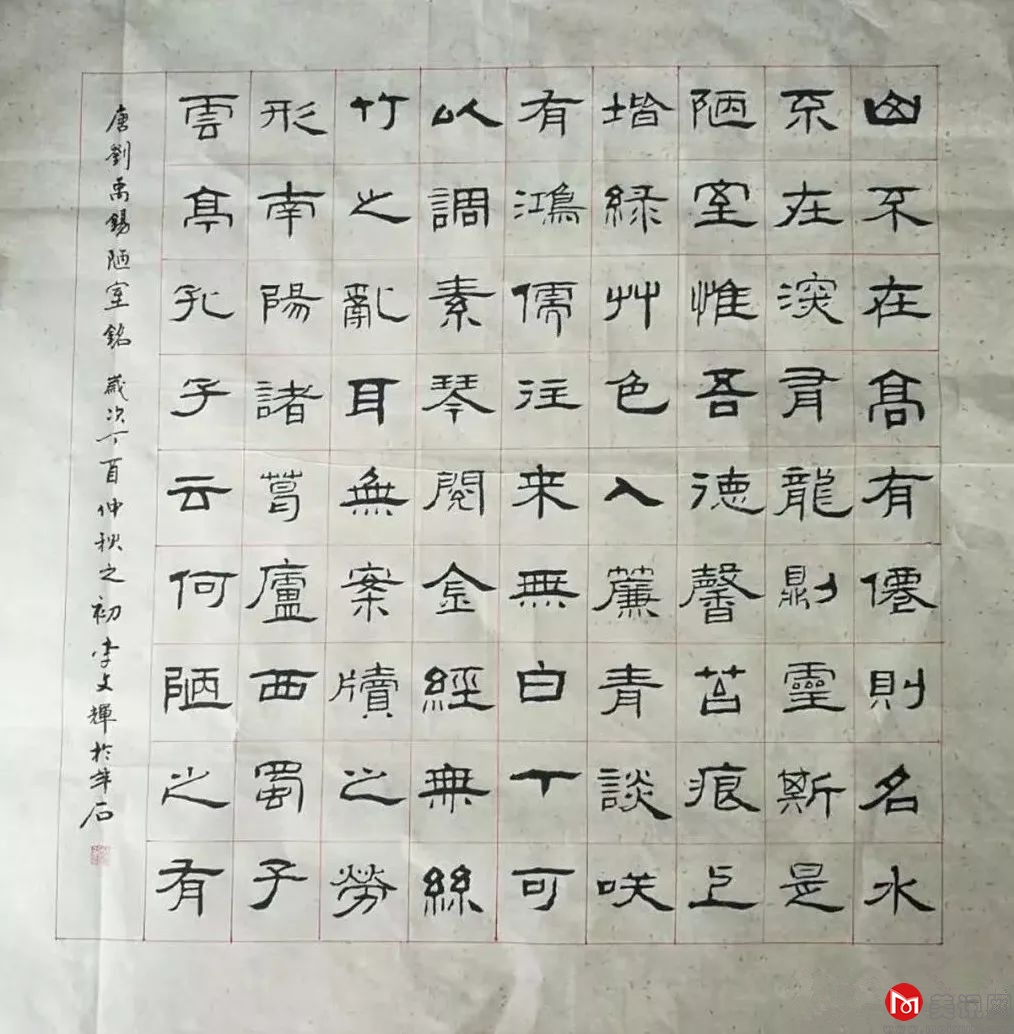 山不在高有僊則名水
不在深有龍則靈斯是
陋室惟吾德馨苔痕上
堦綠艸色入簾青談咲
有鴻儒往来無白丁可
以調素琴閱金經無絲
竹之亂耳無案牘之勞
形南陽諸葛廬西蜀子
雲亭孔子云何陋之有
唐劉禹錫陋室銘 歲次丁酉仲秋之初李文輝於萍石
美讯网